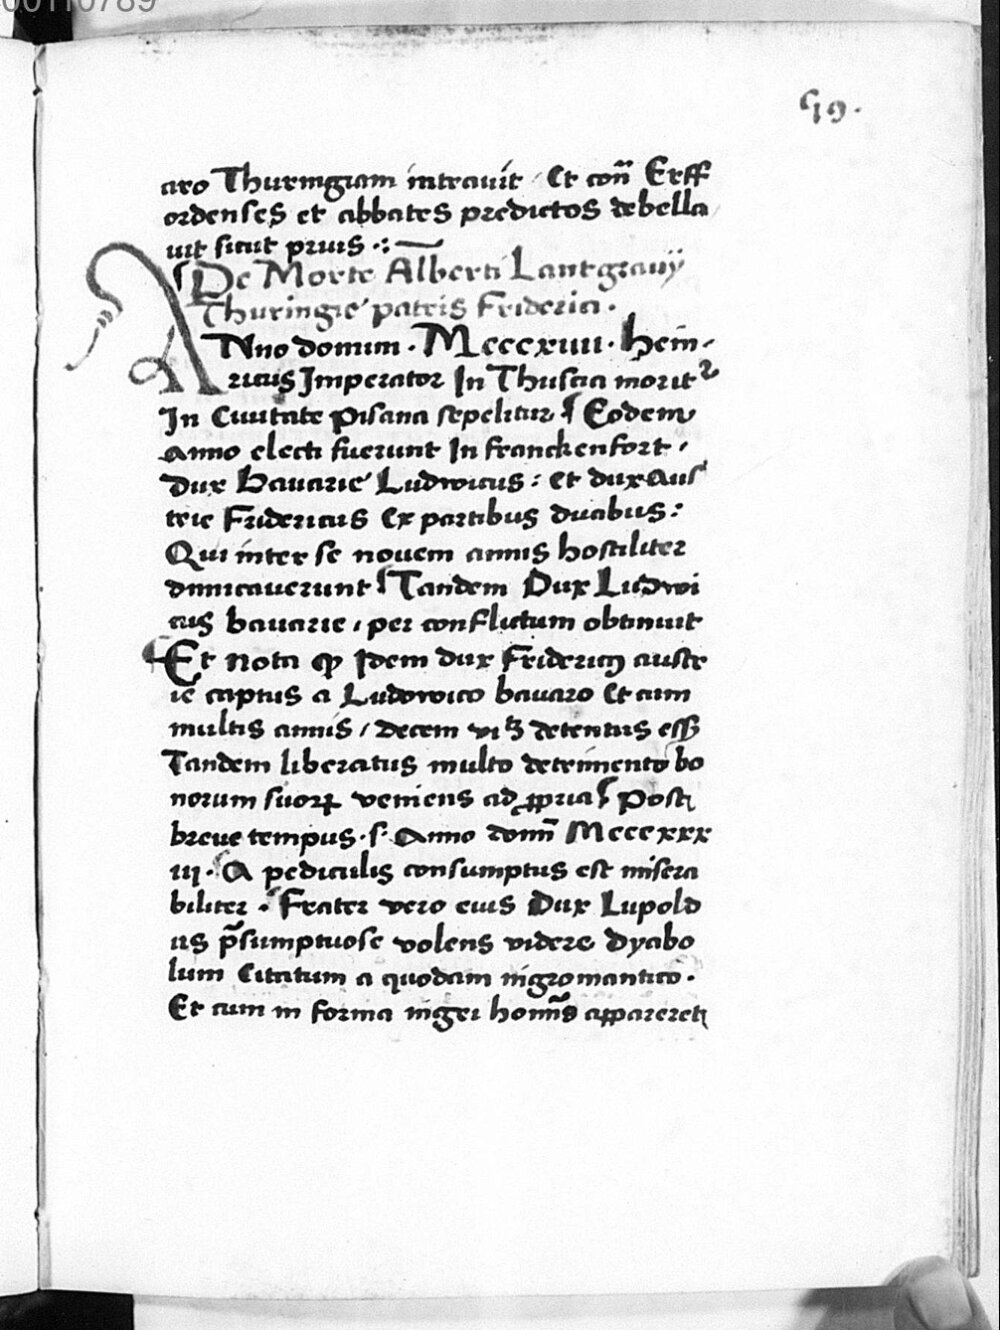 00110789
59.
aro Thuringiam intravit · Et con̄ Erff
ordenses et abbates predictos debella
uit sicut prius ·:~
De Morte Alberti Lantgrauij
Thuringie patris Friderici ·
ANno domini · Mcccxiiii · Hein-
ricus Imperator In Thuscia morit᷑
In Ciuitate pisana sepelitur Eodem
Anno electi fuerunt In franckenfort ·
Dux Bauarie Ludwicus : et dux Aus
trie Fridericus Ex partibus duabus :
Qui inter se nouem annis hostiliter
dimicauerunt Tandem Dux Ludwi
cus bauarie , per conflictum obtinuit
Et Nota ꝙ Idem dux Fridericꝰ austr
ie captus a Ludowico bauaro Et cum
multis annis / decem vꝫ detentus ess
Tandem liberatus multo detrimento bo
norum suorꝝ veniens ad ꝓpria Post
breue tempus · s · Anno domī Mcccxxx
iij · A pediculis consumptus est misera
biliter · Frater vero eius Dux Lupold
us p̄sumptuose volens videre dyabo
lum Citatum a quodam nigromantico ·
Et cum in forma nigri homīs appareret